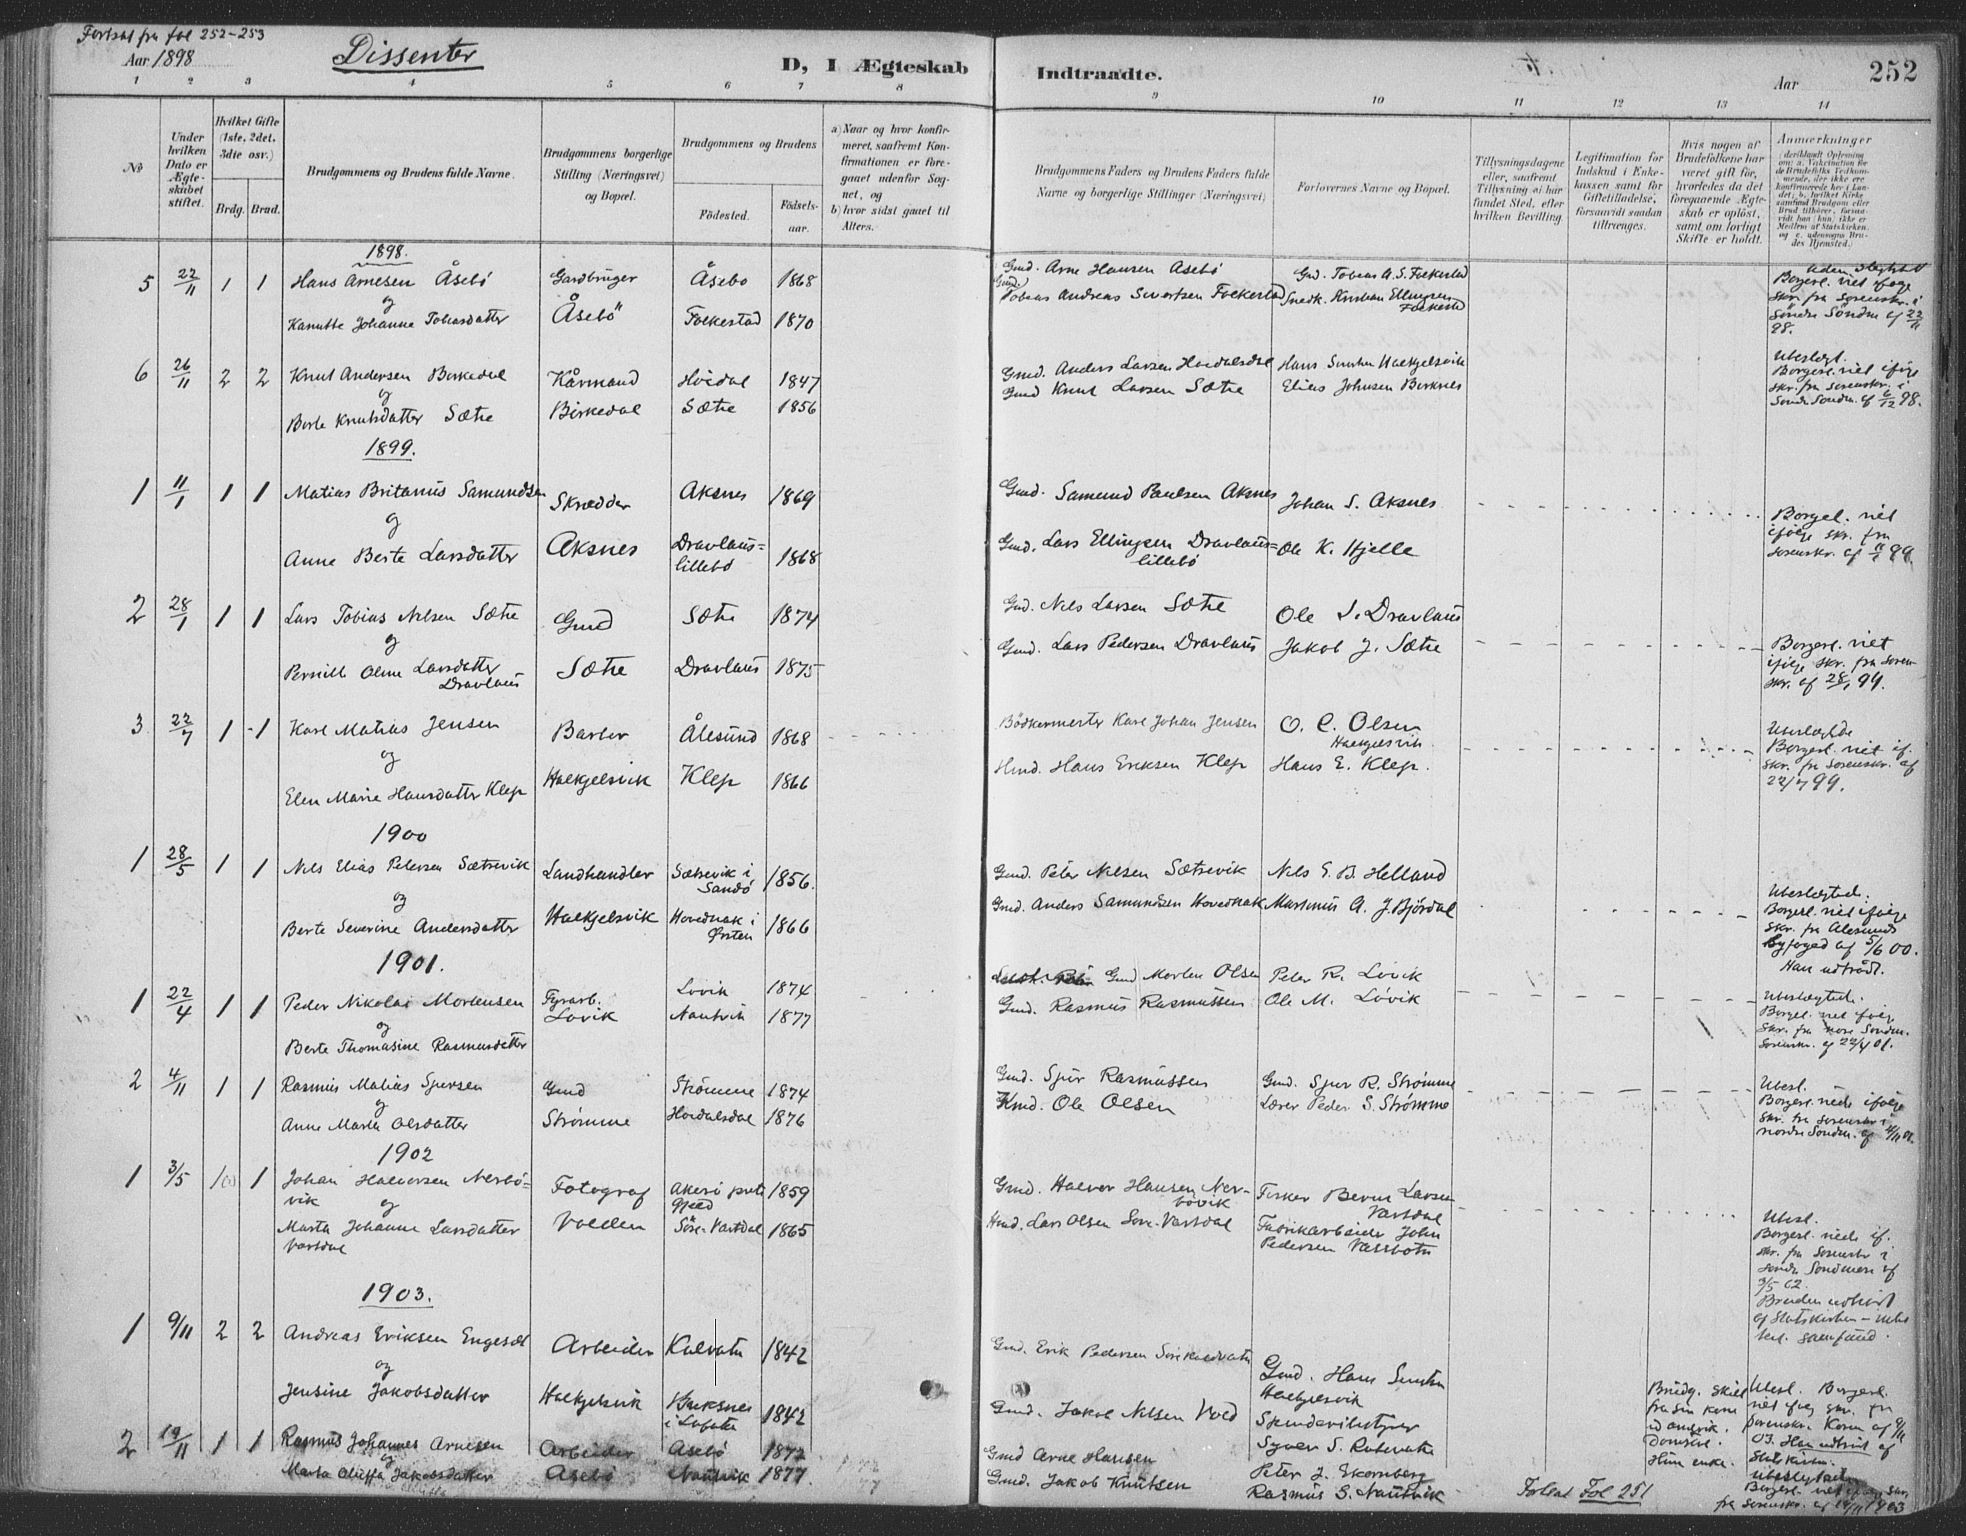 Fortsat fra fol 252-253
Aar 1898
Dissenter
D, I Ægteskab
Indtraadte.
Aar
252
1 2 3 4 5 6 7 8
9 10 11 12 13 14
No
Under hvilken Dato er Ægteskabet stiftet.
Hvilket Gifte (1ste, 2det, 3die osv.)
Brdg. Brud.
Brudgommens og Brudens fulde Navne.
Brudgommens borgerlige Stilling (Næringsvei) og Bopæl.
Brudgommens og Brudens
Födested.
Födsels-aar.
a) Naar og hvor konfirmeret, saafremt Konfirmationen er foregaaet udenfor Sognet, og
b) hvor sidst gaaet til Alters.
Brudgommens Faders og Brudens Faders fulde Navne og borgerlige Stillinger (Næringsvei)
Forlovernes Navne og Bopæl.
Tillysningsdagene eller, saafremt Tillysning ei har fundet Sted, efter hvilken Bevilling.
Legitimation for Indskud i Enkekassen samt for Giftetilladelse, forsaavidt saadan tiltrænges.
Hvis nogen af Brudefolkene har været gift før, hvorledes da det foregaaende Ægteskab er opløst, samt om lovligt Skifte er holdt.
Anmærkninger
1898.
5 22/11 1 1 Hans Arnesen Åsebö Gardbruger Åsebo 1868 Gmd. Arne Hansen Åsebö Gmd. Tobias A. S. Folkestad
og
Kanutte Johanne Tobiasdatter Åsebö Folkestad 1870 Gmd. Tobias Andreas Sivertsen Folkestad Snedk. Kristian Ellingsen Folkestad
Borgerl. viet ifølge skr. fra Sorenskr. i Söndre Söndm. af 22/11 98.
6 26/11 2 2 Knut Andersen Birkedal Kårmand Hoidal 1847 Gmd. Anders Larsen Hoidalsdal Hans Haekjelsvik
og
Berte Knutsdatter Sætre Birkedal Sætre 1856 Gmd Knut Larsen Sætre Elias Johnsen Berknes
Ubeslegt. Borgerl. viet ifølge skr. fra sorenskr. i Söndre Söndm. af 6/12 98.
1899.
1 11/1 1 1 Matias Britanus Samundsen Skrædder Aksnes 1869 Gmd. Samund Paulsen Aksnes Johan S. Aksnes
og
Anne Berte Larsdatter Aksnes Dravlaus=lillebö 1868 Gmd. Lars Ellingsen Dravlaus=lillebö Ole K. Hjelle
Borgel. viet ifølge skr. fra sorenskr. af 11/1 99.
2 28/1 1 1 Lars Tobias Nilsen Sætre Gmd Sætre 1874 Gmd. Nils Larsen Sætre Ole I. Dravlaus
og
Pernille Oline Larsdatter Dravlaus Sætre Dravlaus 1875 Gmd. Lars Pedersen Dravlaus Jakob J. Sætre
Borgerl. viet ifølge skr. fra sorenskr. af 28/1 99.
3 22/7 1 1 Karl Matias Jensen Barber Ålesund 1868 Bödkermester Karl Johan Jensen O. C. Olsen Haekjelsvik
og
Elen Marie Hansdatter Klep Haekjelsvik Klep 1866 Hmd. Hans Eriksen Klep Hans E. Klep.
Ubeslegtede Borgerl. viet if. skr. fra Sorenskr. af 22/7 99.
1900
1 28/5 1 1 Nils Elias Petersen Sætrevik Landhandler Sætrevik i Sandö 1856. Gmd. Peter Nilsen Sætrevik Nils E. B. Helland
og
Berte Severine Andersdatter Haekjelsvik Hovednak i Ørsten 1866 Gmd. Anders Samundsen Hovednak Martinus A. J. Björdal
Ubeslegtede. Borgerl. viet ifølge skr. fra Ålesunds Byfoged af 5/6 00. Han udtrådt.
1901.
1 22/4 1 1 Peder Nikolai Mortensen Fyrarb. Lovik 1874 Gmd Morten Olsen Peter R. Lövik
og
Berte Thomasine Rasmusdatter Lovik Nautvik 1877 Gmd. Rasmus Rasmussen Ole M. Lövik
Ubeslegtede. Borgel. viet ifølge skr. fra nore Söndm. Sorenskr. af 22/4 01.
2 4/11 1 1 Rasmus Matias Spersen Gmd Strömme 1874 Gmd. Spur Rasmussen Gmd. Spur R. Strømme
og
Anne Marta Olsdatter Strømme Hoidalsdal 1876 Kmd. Ole Olsen Lærer Peder S. Strømme
Ubesl. Borgerl. viede ifølge skr. fra sorenskr i nordre Söndm. af 4/11 01.
1902
1 3/5 1 1 Johan Halversen Nerbö=vik Fotograf Akerö 1859 Gmd. Halver Hansen Ner=bövik Fisker Bernt Larsen Vartdal
og
Marta Johanne Larsdatter Vartdal Volden Söre-Vartdal 1865 Hmd. Lars Olsen Söre-Vartdal Fabrikarbeider John Pedersen Vassbotn
Ubesl. Borgerl. viede if. skr. fra Sorenskr i söndre Söndmöre af 3/5 02. Bruden udtraadt af Statskirken
1903.
1 9/11 2 2 Andreas Eriksen Engeset Arbeider Kalvatn 1842 Gmd. Erik Pedersen Gmd. Hans Haekjelsvik
og
Jensine Jakobsdatter Haekjelsvik Buksnes i Lofoten 1842 Gmd. Jakob Nilsen Vold
Brudg. skilt fra sin kone Hun enke.
Ubesl. Borgerl. viet ifølg skr. fra sorenskr. af 9/11 03. Han udtraadt af Statskirken.
2 19/11 1 1 Rasmus Johannes Arnesen Arbeider Åsebö 1872 Gmd Arne Hansen Peter J. Ekornberg
og
Marta Jakobsdatter Åsebö Nautvik 1877 Gmd. Jakob Knutsen Rasmus S. Nautvik
Fortsat Fol 251